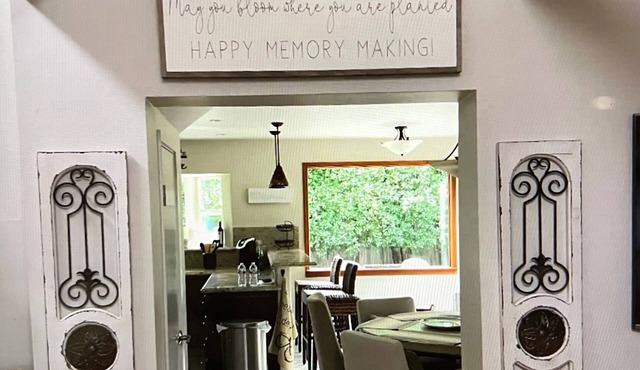 May you bloom where you are planted
HAPPY MEMORY MAKING!